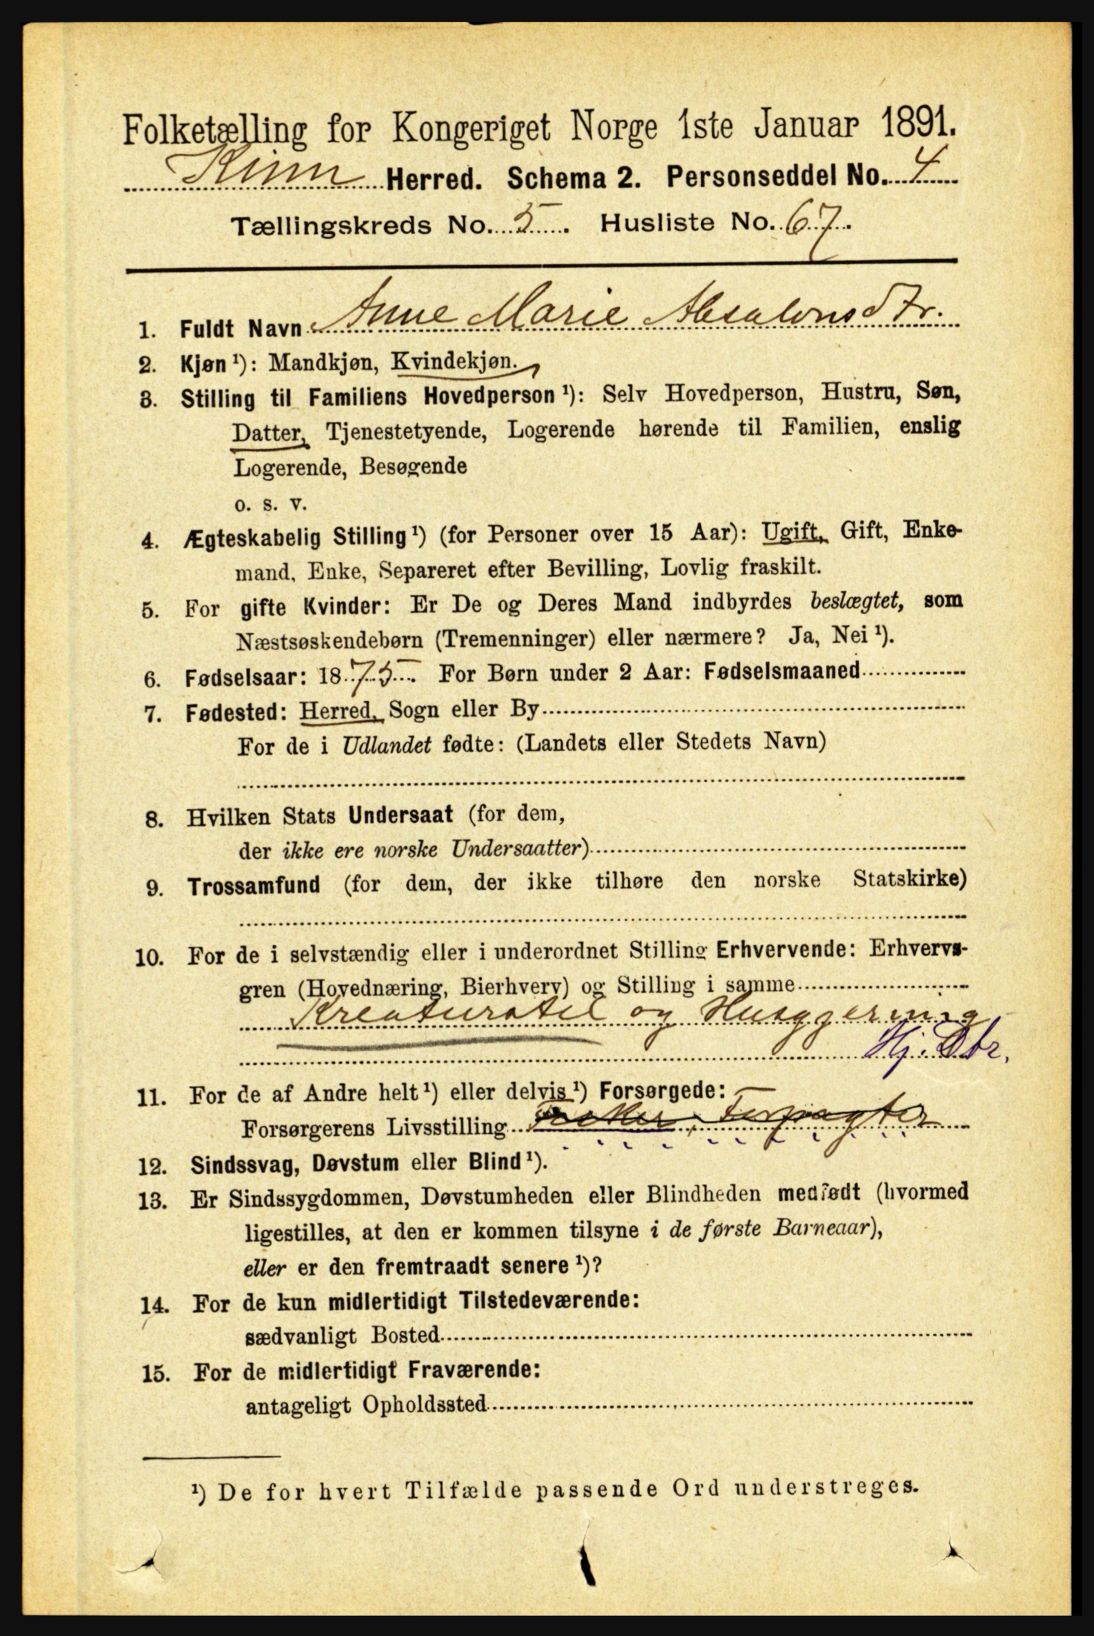 Folketælling for Kongeriget Norge 1ste Januar 1891.
Kinn Herred. Schema 2. Personseddel No. 4
Tællingskreds No. 5. Husliste No. 67.
1. Fuldt Navn Anne Marie Absalonsdtr.
2. Kjøn ¹): Mandkjøn, Kvindekjøn.
3. Stilling til Familiens Hovedperson ¹): Selv Hovedperson, Hustru, Søn,
Datter, Tjenestetyende, Logerende hørende til Familien, enslig
Logerende, Besøgende
o. s. v.
4. Ægteskabelig Stilling ¹) (for Personer over 15 Aar): Ugift, Gift, Enke-
mand, Enke, Separeret efter Bevilling, Lovlig fraskilt.
5. For gifte Kvinder: Er De og Deres Mand indbyrdes beslægtet, som
Næstsøskendebørn (Tremenninger) eller nærmere? Ja, Nei ¹).
6. Fødselsaar: 1875. For Børn under 2 Aar: Fødselsmaaned
7. Fødested: Herred, Sogn eller By
For de i Udlandet fødte: (Landets eller Stedets Navn)
8. Hvilken Stats Undersaat (for dem,
der ikke ere norske Undersaatter)
9. Trossamfund (for dem, der ikke tilhøre den norske Statskirke)
10. For de i selvstændig eller i underordnet Stilling Erhvervende: Erhvervs-
gren (Hovednæring, Bierhverv) og Stilling i samme
Kreaturstel og Husgjerning
Hj. Dtr.
11. For de af Andre helt ¹) eller delvis ¹) Forsørgede:
Forsørgerens Livsstilling Forpagter
12. Sindssvag, Døvstum eller Blind ¹).
13. Er Sindssygdommen, Døvstumheden eller Blindheden medfødt (hvormed
ligestilles, at den er kommen tilsyne i de første Barneaar),
eller er den fremtraadt senere ¹)?
14. For de kun midlertidigt Tilstedeværende:
sædvanligt Bosted
15. For de midlertidigt Fraværende:
antageligt Opholdssted
¹) De for hvert Tilfælde passende Ord understreges.